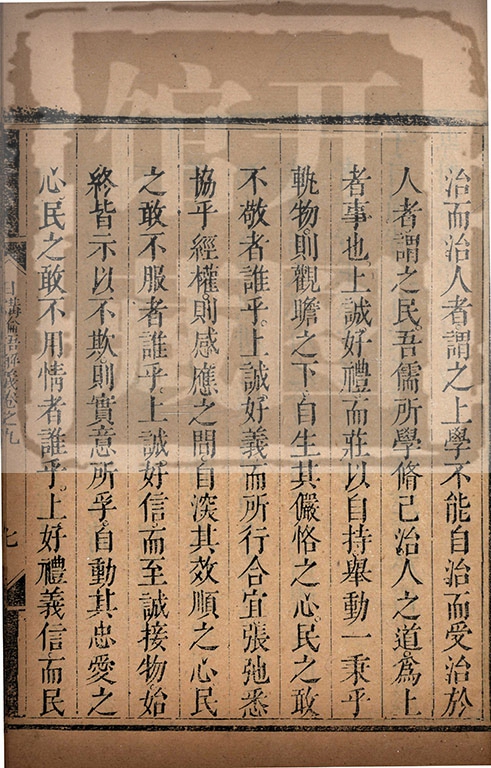 治而治人者謂之上學不能自治而受治於
人者謂之民吾儒所學脩己治人之道爲上
者事也上誠好禮而莊以自持舉動一秉乎
軌物則觀瞻之下自生其儼恪之心民之敢
不敬者誰乎上誠好義而所行合宜張弛悉
協乎經權則感應之間自深其效順之心民
之敢不服者誰乎上誠好信而至誠接物始
終皆示以不欺則實意所孚自動其忠愛之
心民之敢不用情者誰乎上好禮義信而民
日講論語解義卷之九
七